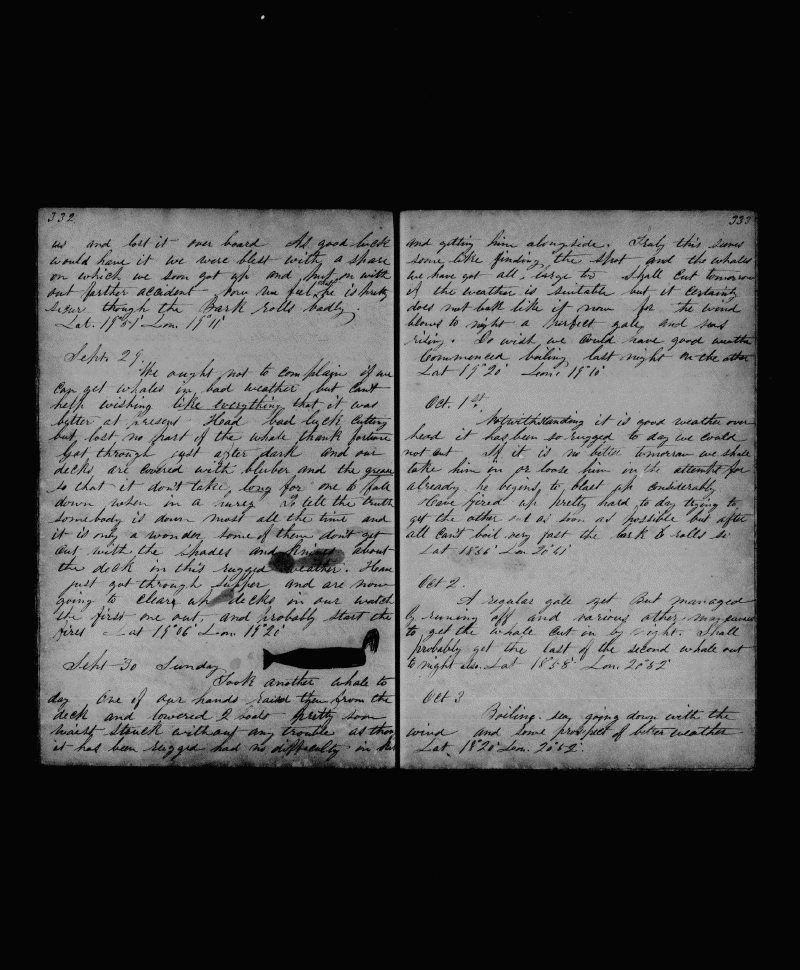 332
us and lost it over board As good luck
would have it we were blest with a spare
on which we soon got up and put on with
out farther accident now we feel she is pretty
secure though the Bark rolls badly.
Lat. 19°51' Lon. 19°11'
Sept. 29.
We ought not to complain if we
can get whales in bad weather but can't
help wishing like everything that it was
better at present Had bad luck cutting
but lost no part of the whale thank fortune
Got through just after dark and our
decks are covered with bluber and the grease
so that it don't take long for one to fall
down when in a hurey To tell the truth
somebody is down most all the time and
it is only a wonder some of them don't get
cut with the spades and knives about
the deck in this rugged weather. Have
just got through supper, and are now
going to clear up decks in our watch
the first one out, and probably start the
fires Lat 19°06' Lon. 19°20'
Sept 30 Sunday
Took another whale to
day One of our hands raised them from the
deck and lowered 2 boats pretty soon
waist struck without any trouble as thou
it has been rugged had no difficulty in
333
and getting him alongside. Truly this seems
some like finding the spot and the whales
we have got all large to Shall cut tomorrow
if the weather is suitable but it certainly
does not look like it now for the wind
blows to night a perfect gale and seas
riseing. Do wish we could have good weather
Commenced boiling last night on the other
Lat 19°20' Lon. 19°10'
Oct. 1st.
Notwithstanding it is good weather over
head it has been so rugged to day we could
not cut If it is no better tomorrow we shall
take him in or loose him in the attempt for
already he begins to blast up considerably
Have fired up pretty hard to day trying to
get the other out as soon as possible but after
all can't boil very fast the bark rolls so
Lat 18°56' Lon 20°41'
Oct 2.
A regular gale yet But managed
by runing off and various other
to get the whale cut in by night. Shall
probably get the last of the second whale out
to night also. Lat 18°58' Lon. 20°52'
Oct 3
Boiling. sea going down with the
wind and some prospect of better weather
Lat. 18°20' Lon. 20°52'